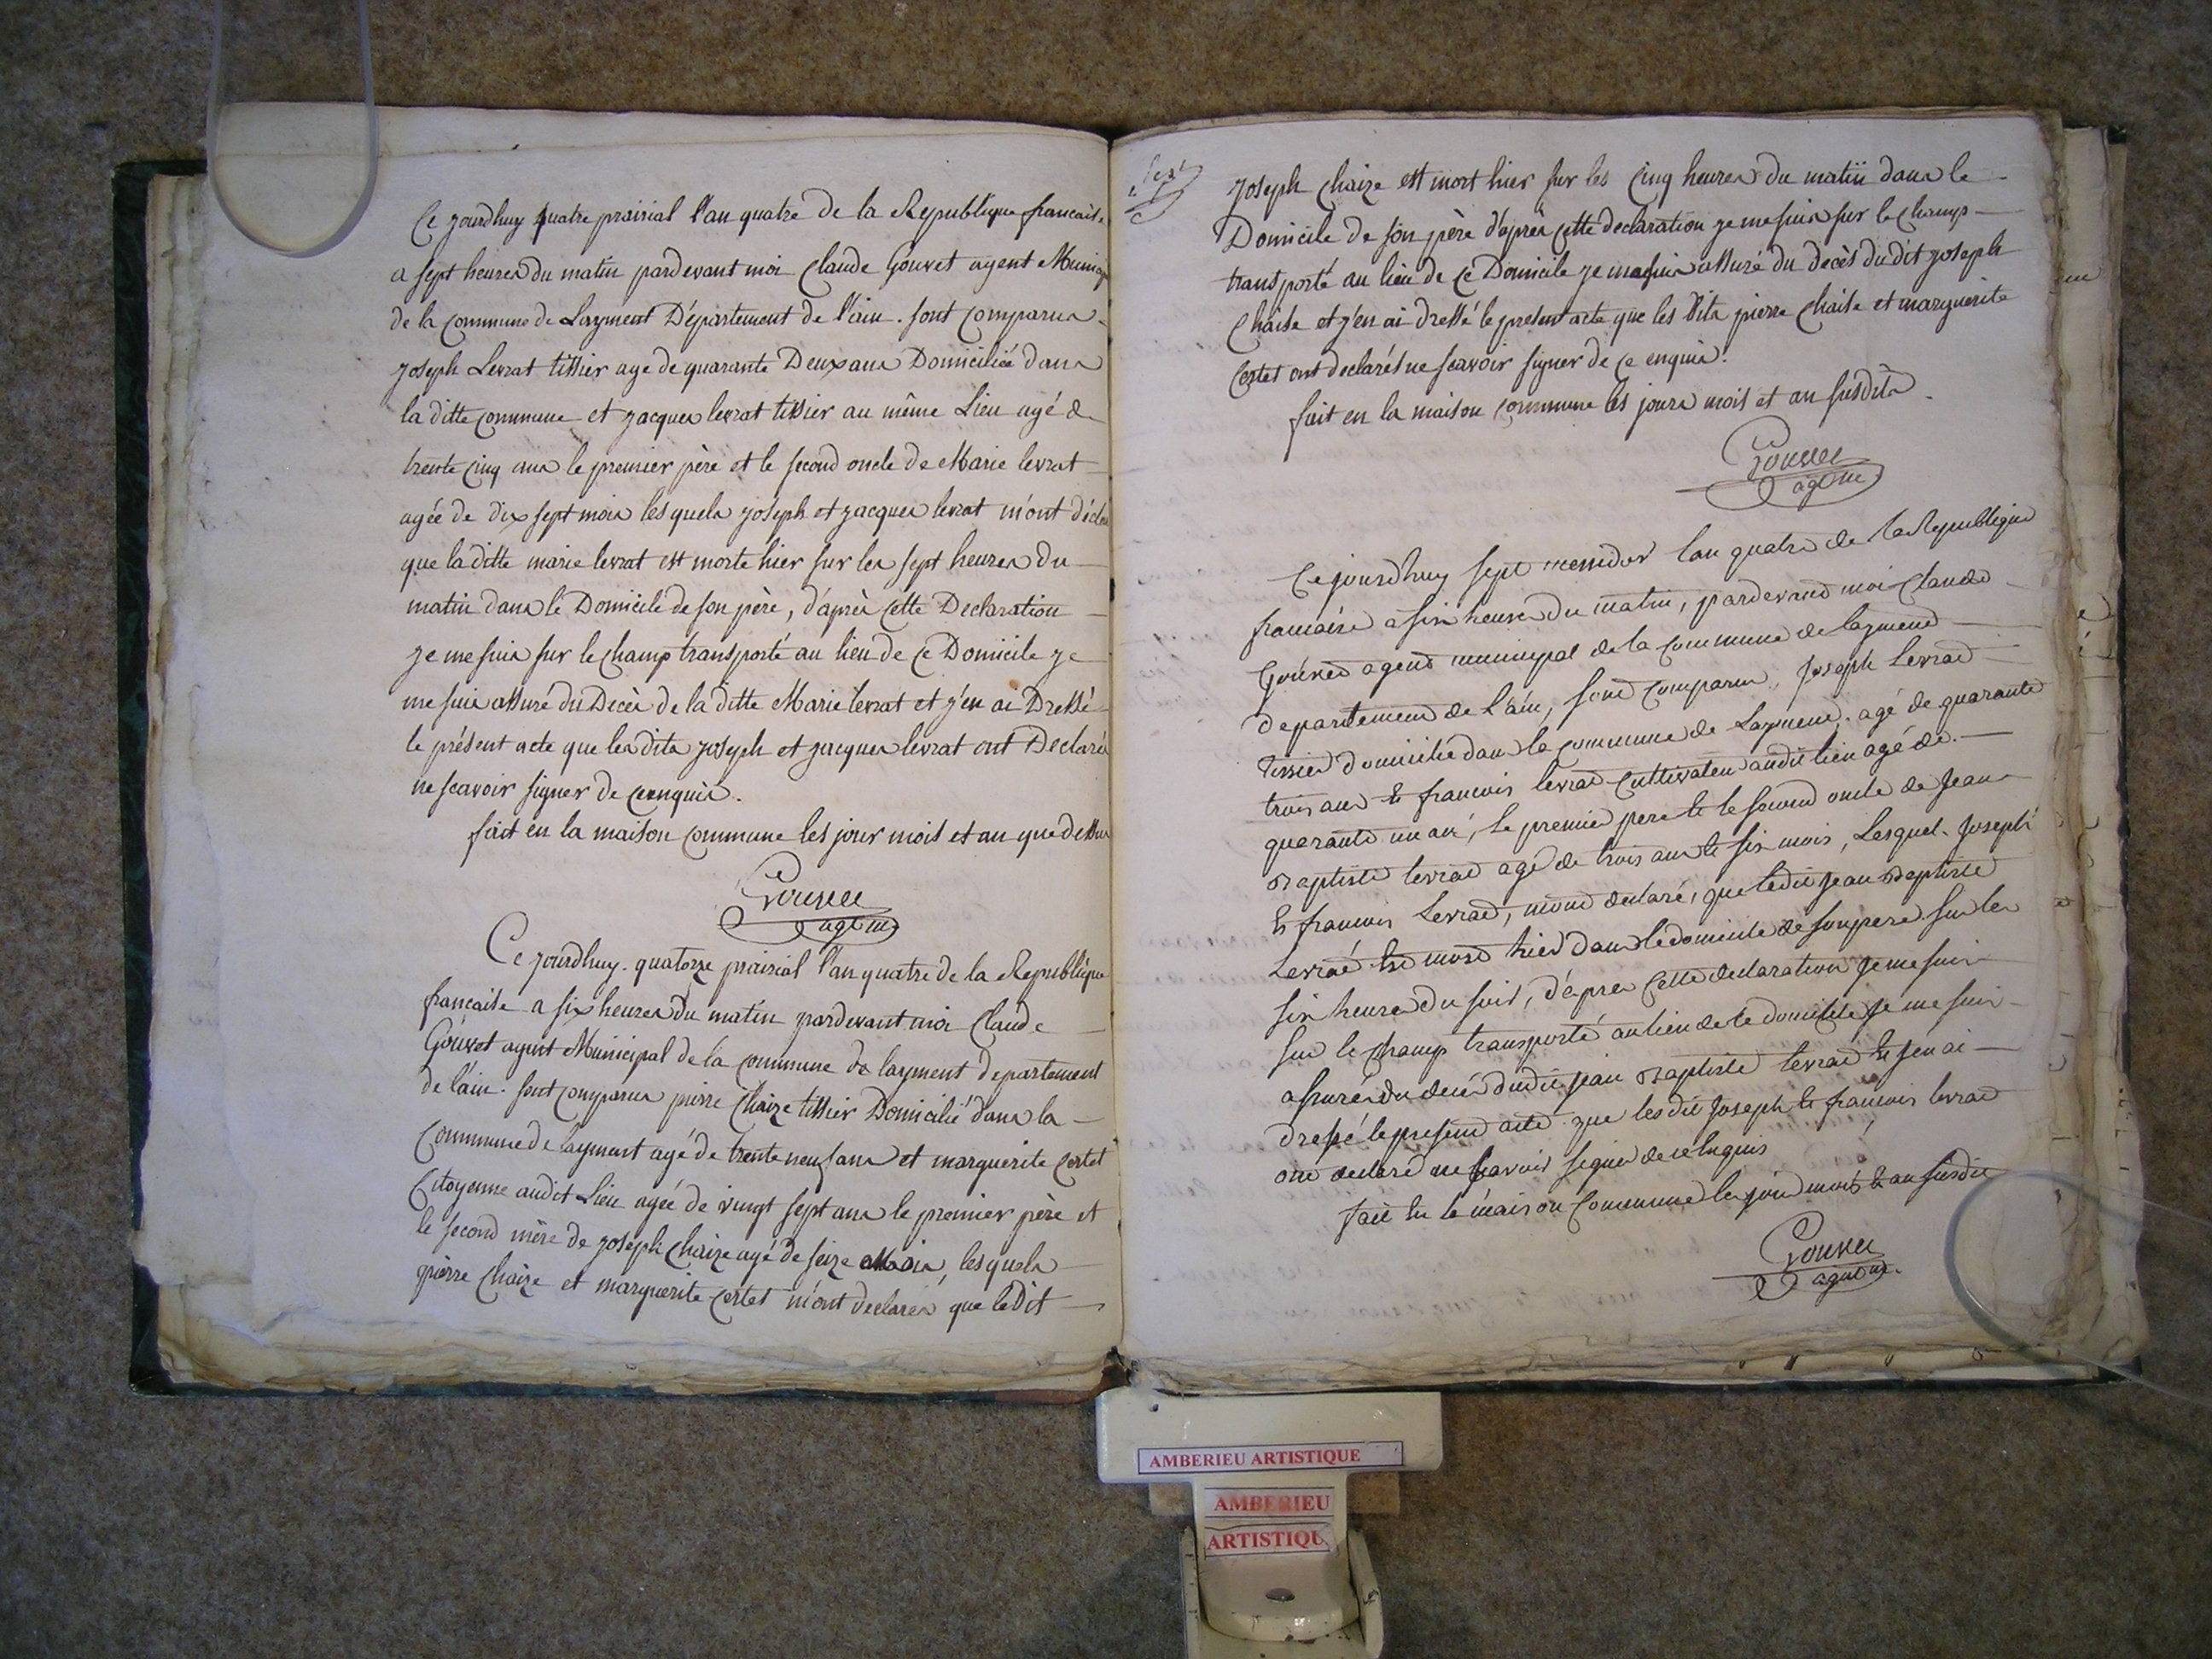 Ce jourdhuy quatre prairial l'an quatre de la Republique francaise
a sept heures du matin pardevant moi Claude Gouvet agent Municip
de la commune de Layment Département de l'ain. sont comparus
joseph Levrat tissier age de quarante Deux ans Domiciliée dans
la ditte commune et jacques levrat tissier au même Lieu agé de
trente cinq ans le premier père et le second oncle de Marie levrat
agée de dix sept mois lesquels joseph et jacques levrat m'ont décla
que la ditte marie levrat est morte hier sur les sept heures du
matin dans le Domicile de son père, d'après cette Declaration
je me suis sur le champ transporté au lieu de ce Domicile je
me suis assuré du Decès de la ditte Marie levrat et j'en ai Dressé
le présent acte que les dits joseph et jacques levrat ont Declarés
ne scavoir signer de ce enquis.
fait en la maison commune les jour mois et an que dessus
Gouvet
agent
Ce jourdhuy. quatorze prairial l'an quatre de la Republique
francaise a six heures du matin pardevant moi Claude
Gouvet agent Municipal de la commune de layment departement
de l'ain. sont comparus pierre Chaize tissier Domicilié dans la
commune de layment agé de trente neuf ans et marguerite Certet
Citoyenne audit Lieu agée de vingt sept ans le premier père et
le second mère de joseph Chaize agé de seize Mois, lesquels
pierre Chaize et marguerite Certet m'ont declarés que ledit
joseph Chaize est mort hier sur les cinq heures du matin dans le
Domicile de son père d'après cette declaration je me suis sur le champ
transporté au lieu de ce Domicile je me suis assuré du decès dudit joseph
Chaise et j'en ai dressé le present acte que les dits pierre Chaise et marguerite
Certet ont declarés ne scavoir signer de ce enquis.
fait en la maison commune les jours mois et an susdits
Gouvet
agent
Ce jourdhuy sept messidor lan quatre de la Republique
francaise a six heures du matin, pardevant moi Claude
Gouvet agent municipal de la commune de layment
departement de l'ain, sont comparus, joseph Levrat
tissier domicilié dans la commune de Layment. agé de quarante
trois ans et francois levrat cultivateur audit lieu agé de
quarante un an, le premier pere et le second oncle de Jean
Baptiste levrat agé de trois ans et six mois, Lesquel. Joseph
et francois Levrat, mont declaré, que ledit Jean Baptiste
Levrat est mort hier dans le domicile de son pere sur les
six heures du soir, d'apres cette declaration je me suis
sur le champ transporté au lieu de ce domicile je me suis
assuré du decés dudit jean Baptiste levrat et jen ai
dressé le present acte que les dit Joseph et francois levrat
ont declaré ne scavoir signer de ce enquis
fait en la maison commune les jour mois et an susdit
Gouvet
agent
AMBERIEU ARTISTIQUE
AMBERIEU
ARTISTIQU